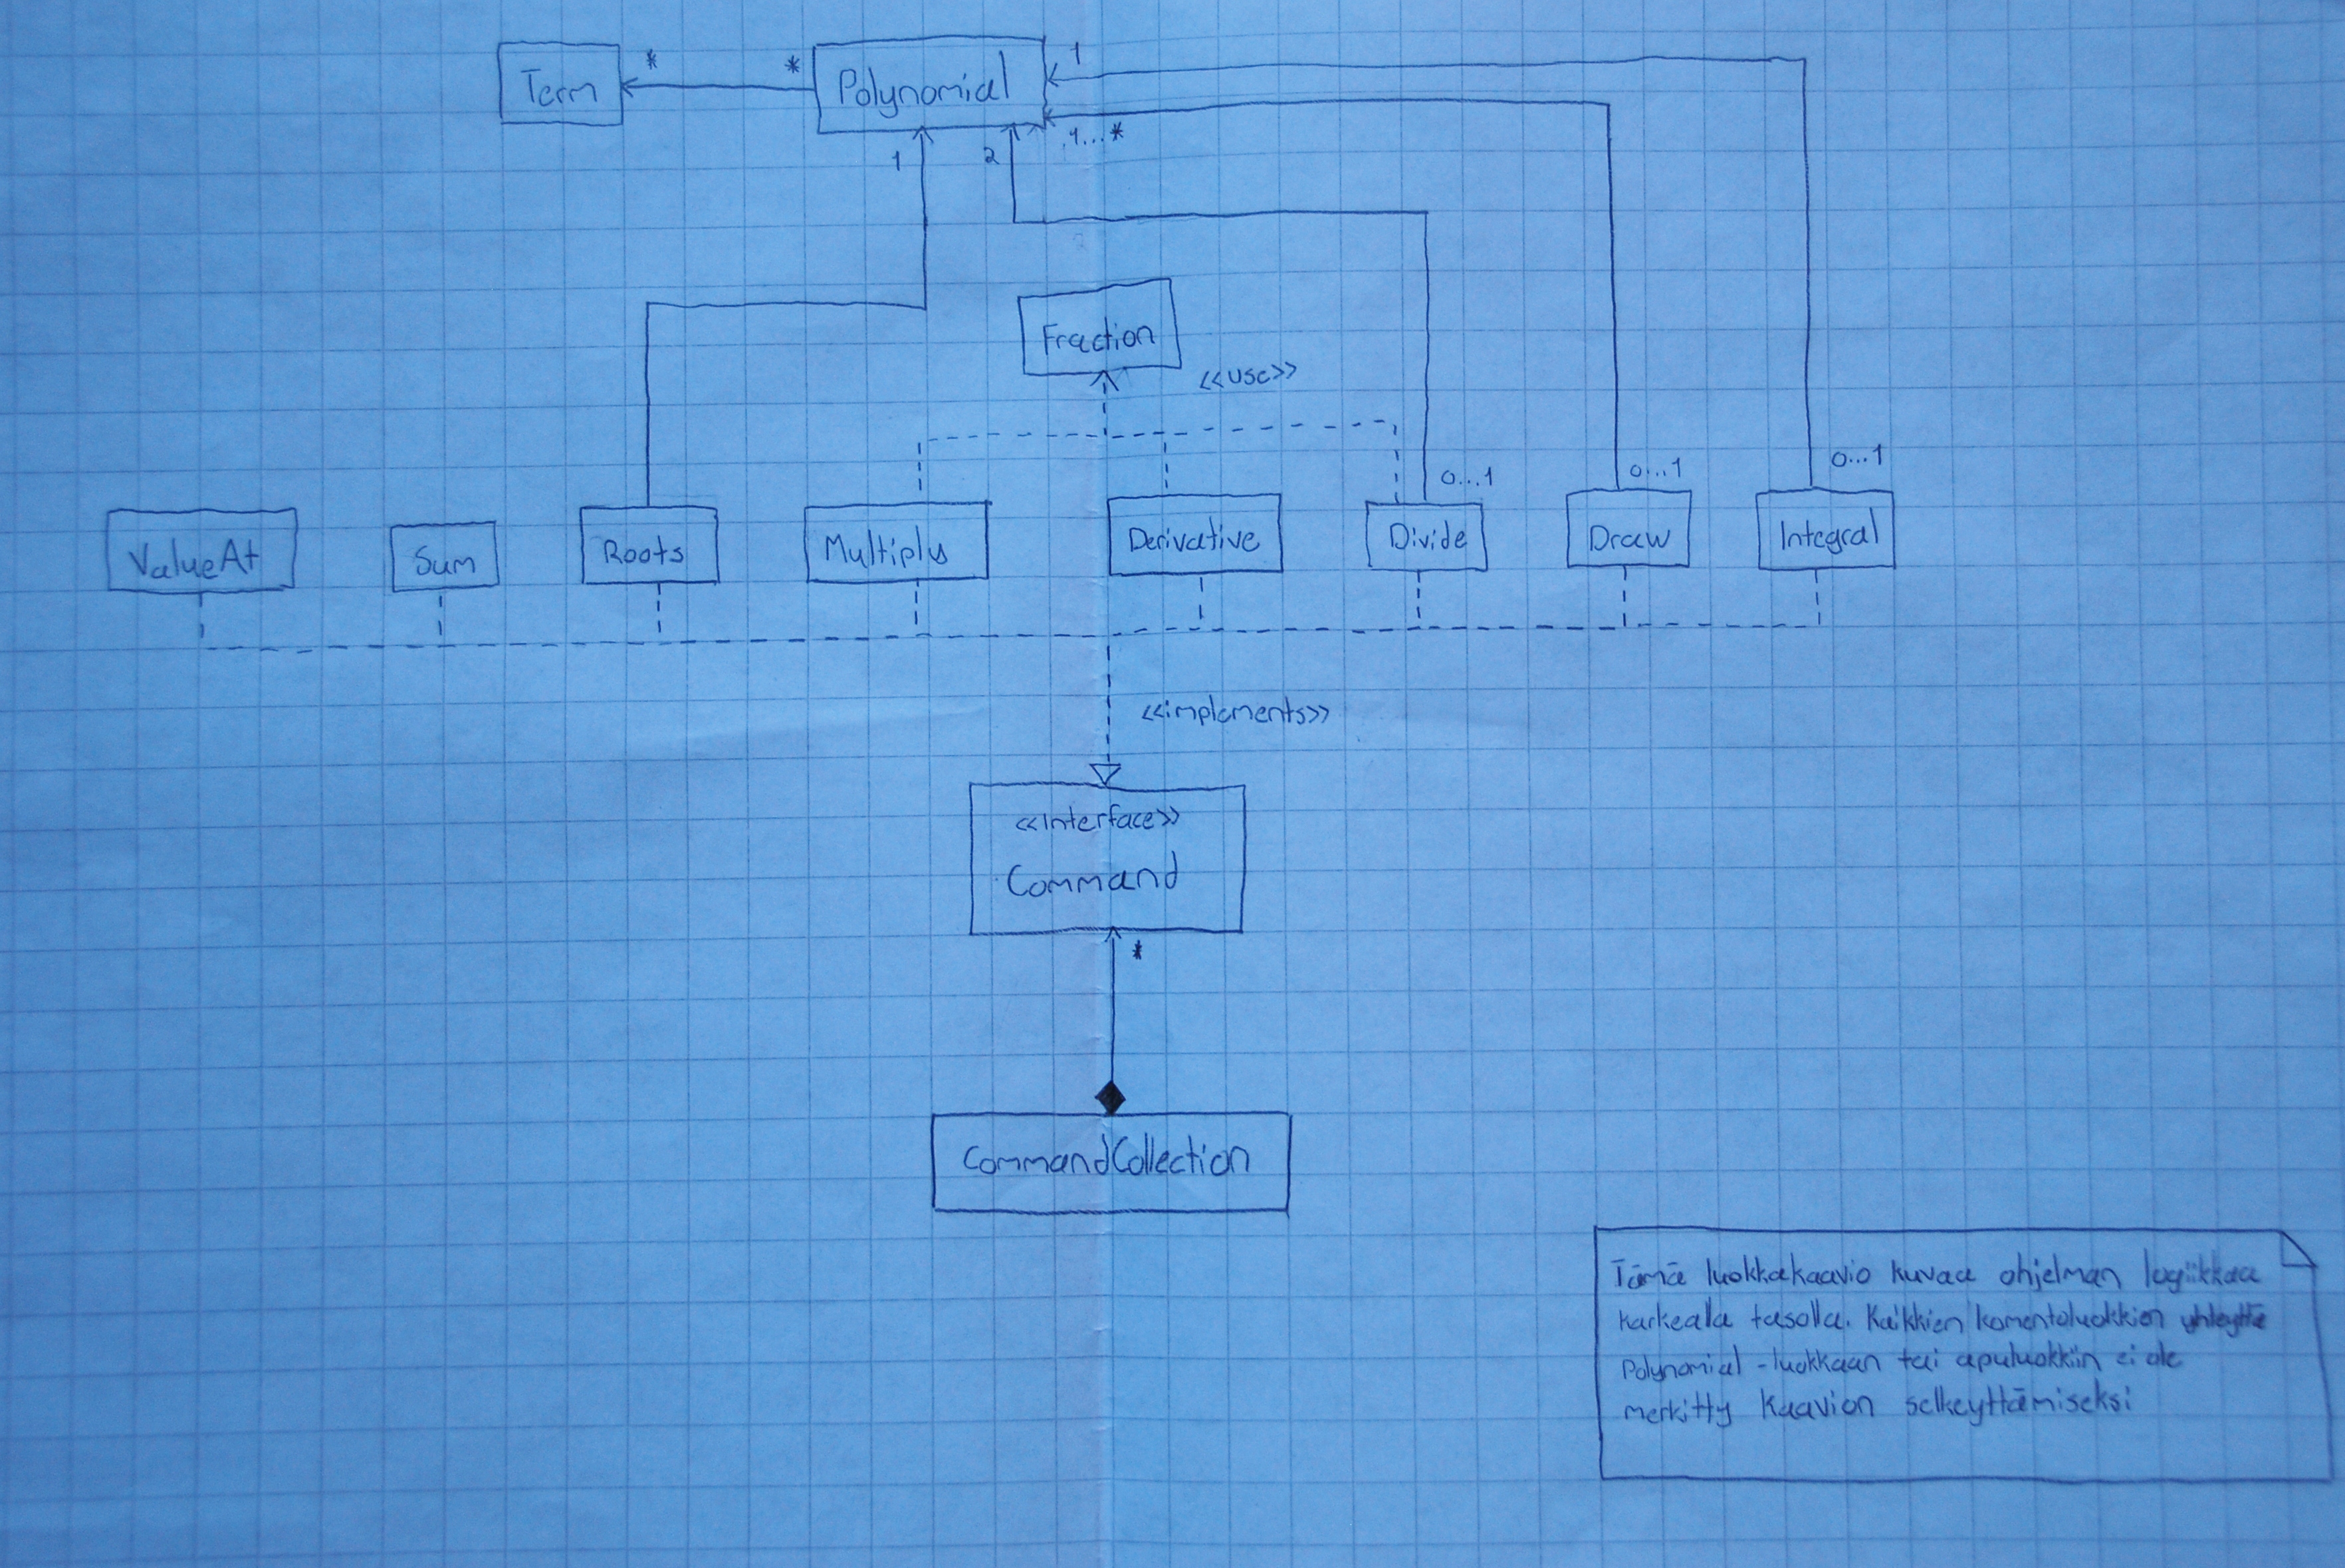 Term
*
*
Polynomial
1
1...*
1
2
Fraction
<<use>>
0...1
0...1
0...1
ValueAt
Sum
Roots
Multiply
Derivative
Divide
Draw
Integral
<<implements>>
<<Interface>>
Command
*
CommandCollection
Tämä luokkakaavio kuvaa ohjelman logiikkaa
karkealla tasolla. Kaikkien komentoluokkien yhteyttä
Polynomial -luokkaan tai apuluokkiin ei ole
merkitty kaavion selkeyttämiseksi